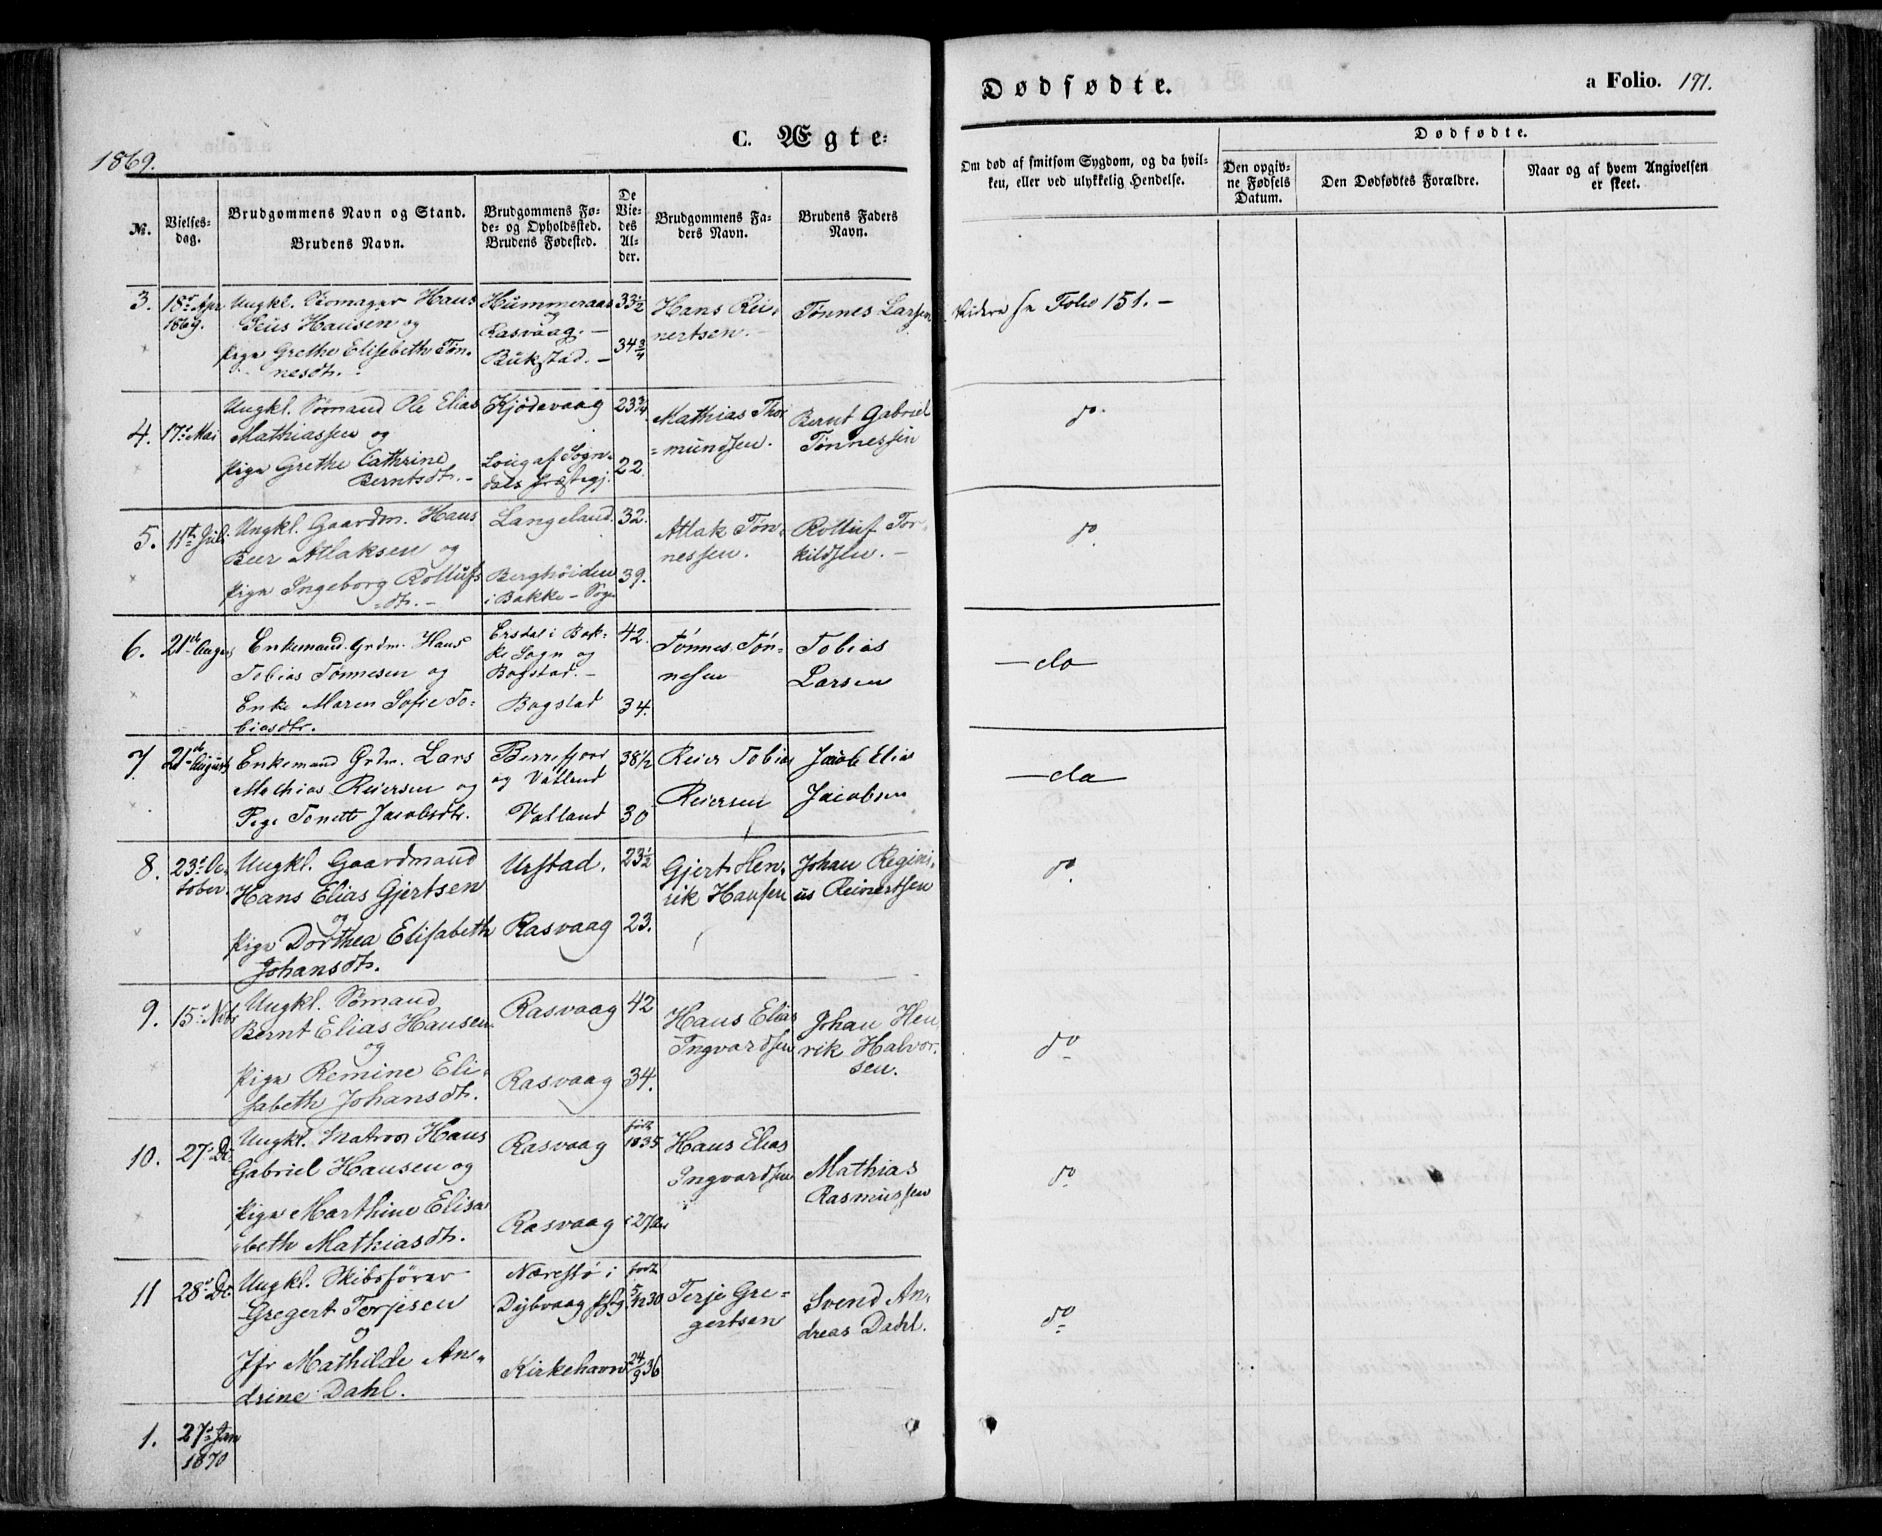 1869.
C. Ægte-
№.
Vielses-
dag.
Brudgommens Navn og Stand.
Brudens Navn.
Brudgommens Fø-
de- og Opholdssted.
Brudens Fødested.
De
Vie-
des
Al-
der.
Brudgommens Fa-
ders Navn.
Brudens Faders
Navn.
3.
18de Apr.
1869.
Ungkl. Hans
Hansen og
Pige Grethe Elisabeth Tøn-
nesdtr.
Hummeraas
og
Rasvaag. -
Bukstad. -
33½
34¾
Hans Rei-
nertsen. -
Tønnes Larsen
4.
17de Mai
Ungkl. Sømand Ole Elias
Mathiassen og
Pige Grethe Cathrine
Berntsdtr. -
Kjødevaag
Loug af Sogn-
dals Præstegj.
23¾
22.
Mathias Tho-
mundsen.
Bernt Gabriel
Tønnessen
5.
11te Juli
Ungkl. Gaardm. Hans
Beer Atlaksen og
Pige Ingeborg Rollufs
dtr. -
Langeland.
Berghöiden
i Bakke - Sogn
32.
39.
Atlak Tøn-
nessen.
Rolluf Tor-
kildsen. -
6.
21de August
Enkemand Grdm. Hans
Tobias Tønnesen og
Enke Maren Sofie To-
biasdtr.
Ersdal i Bak-
ke Sogn og
Bogstad. -
Bogstad
42.
34.
Tønnes Tøn-
nesen
Tobias
Larsen
7
21de August
Enkemand Grdm. Lars
Mathias Reiersen og
Pige Tonette Jacobsdtr.
Berrefjord
og Vatland
Vatland
38½
30
Reier Tobias
Reiersen
Jacob Elias
Jacobsen
8.
23de Oc-
tober.
Ungkl. Gaardmand
Hans Elias Gjertsen
og
Pige Dorthea Elisabeth
Johansdtr.
Urstad.
Rasvaag
23½
23.
Gjert Hen-
rik Hansen
Johan Regini-
us Reinertsen
9.
15de Nvbr
Ungkl. Sømand
Bernt Elias Hansen
og
Pige Remine Eli-
sabeth Johansdtr.
Rasvaag
Rasvaag
42
34.
Hans Elias
Ingvardsen
Johan Hen-
rik Halvor-
sen.
10.
27de Dc.
Ungkl. Matros Hans
Gabriel Hansen og
Pige Marthine Elisa-
beth Mathiasdtr.
Rasvaag
Rasvaag
født
1835
27 Aar
Hans Elias
Ingvardsen
Mathias
Rasmussen
11
28de Dc.
Ungkl. Skibsfører
Gregert Terjesen
og
Jfr Mathilde An-
drine Dahl.
Nærestø i
Dybvaag Pgj.
Kirkehavn
født
5/12 30
24/9 36
Terje Gre-
gertsen
Svend An-
dreas Dahl.
1.
27de Jan
1870
Dødfødte.
a Folio. 191.
Om død af smitsom Sygdom, og da hvil-
ken, eller ved ulykkelig Hendelse.
Dødfødte.
Den opgiv-
ne Fødsels
Datum.
Den Dødfødtes Forældre.
Naar og af hvem Angivelsen
er skeet.
Videre se Folio 151. -
do.
do.
- do
- do
do.
do
do
do